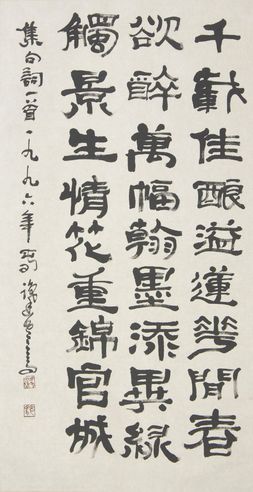 千載佳酿溢蓮花聞春
欲醉萬幅翰墨添異緑
觸景生情花重錦官城
集句詞一首一九九六年